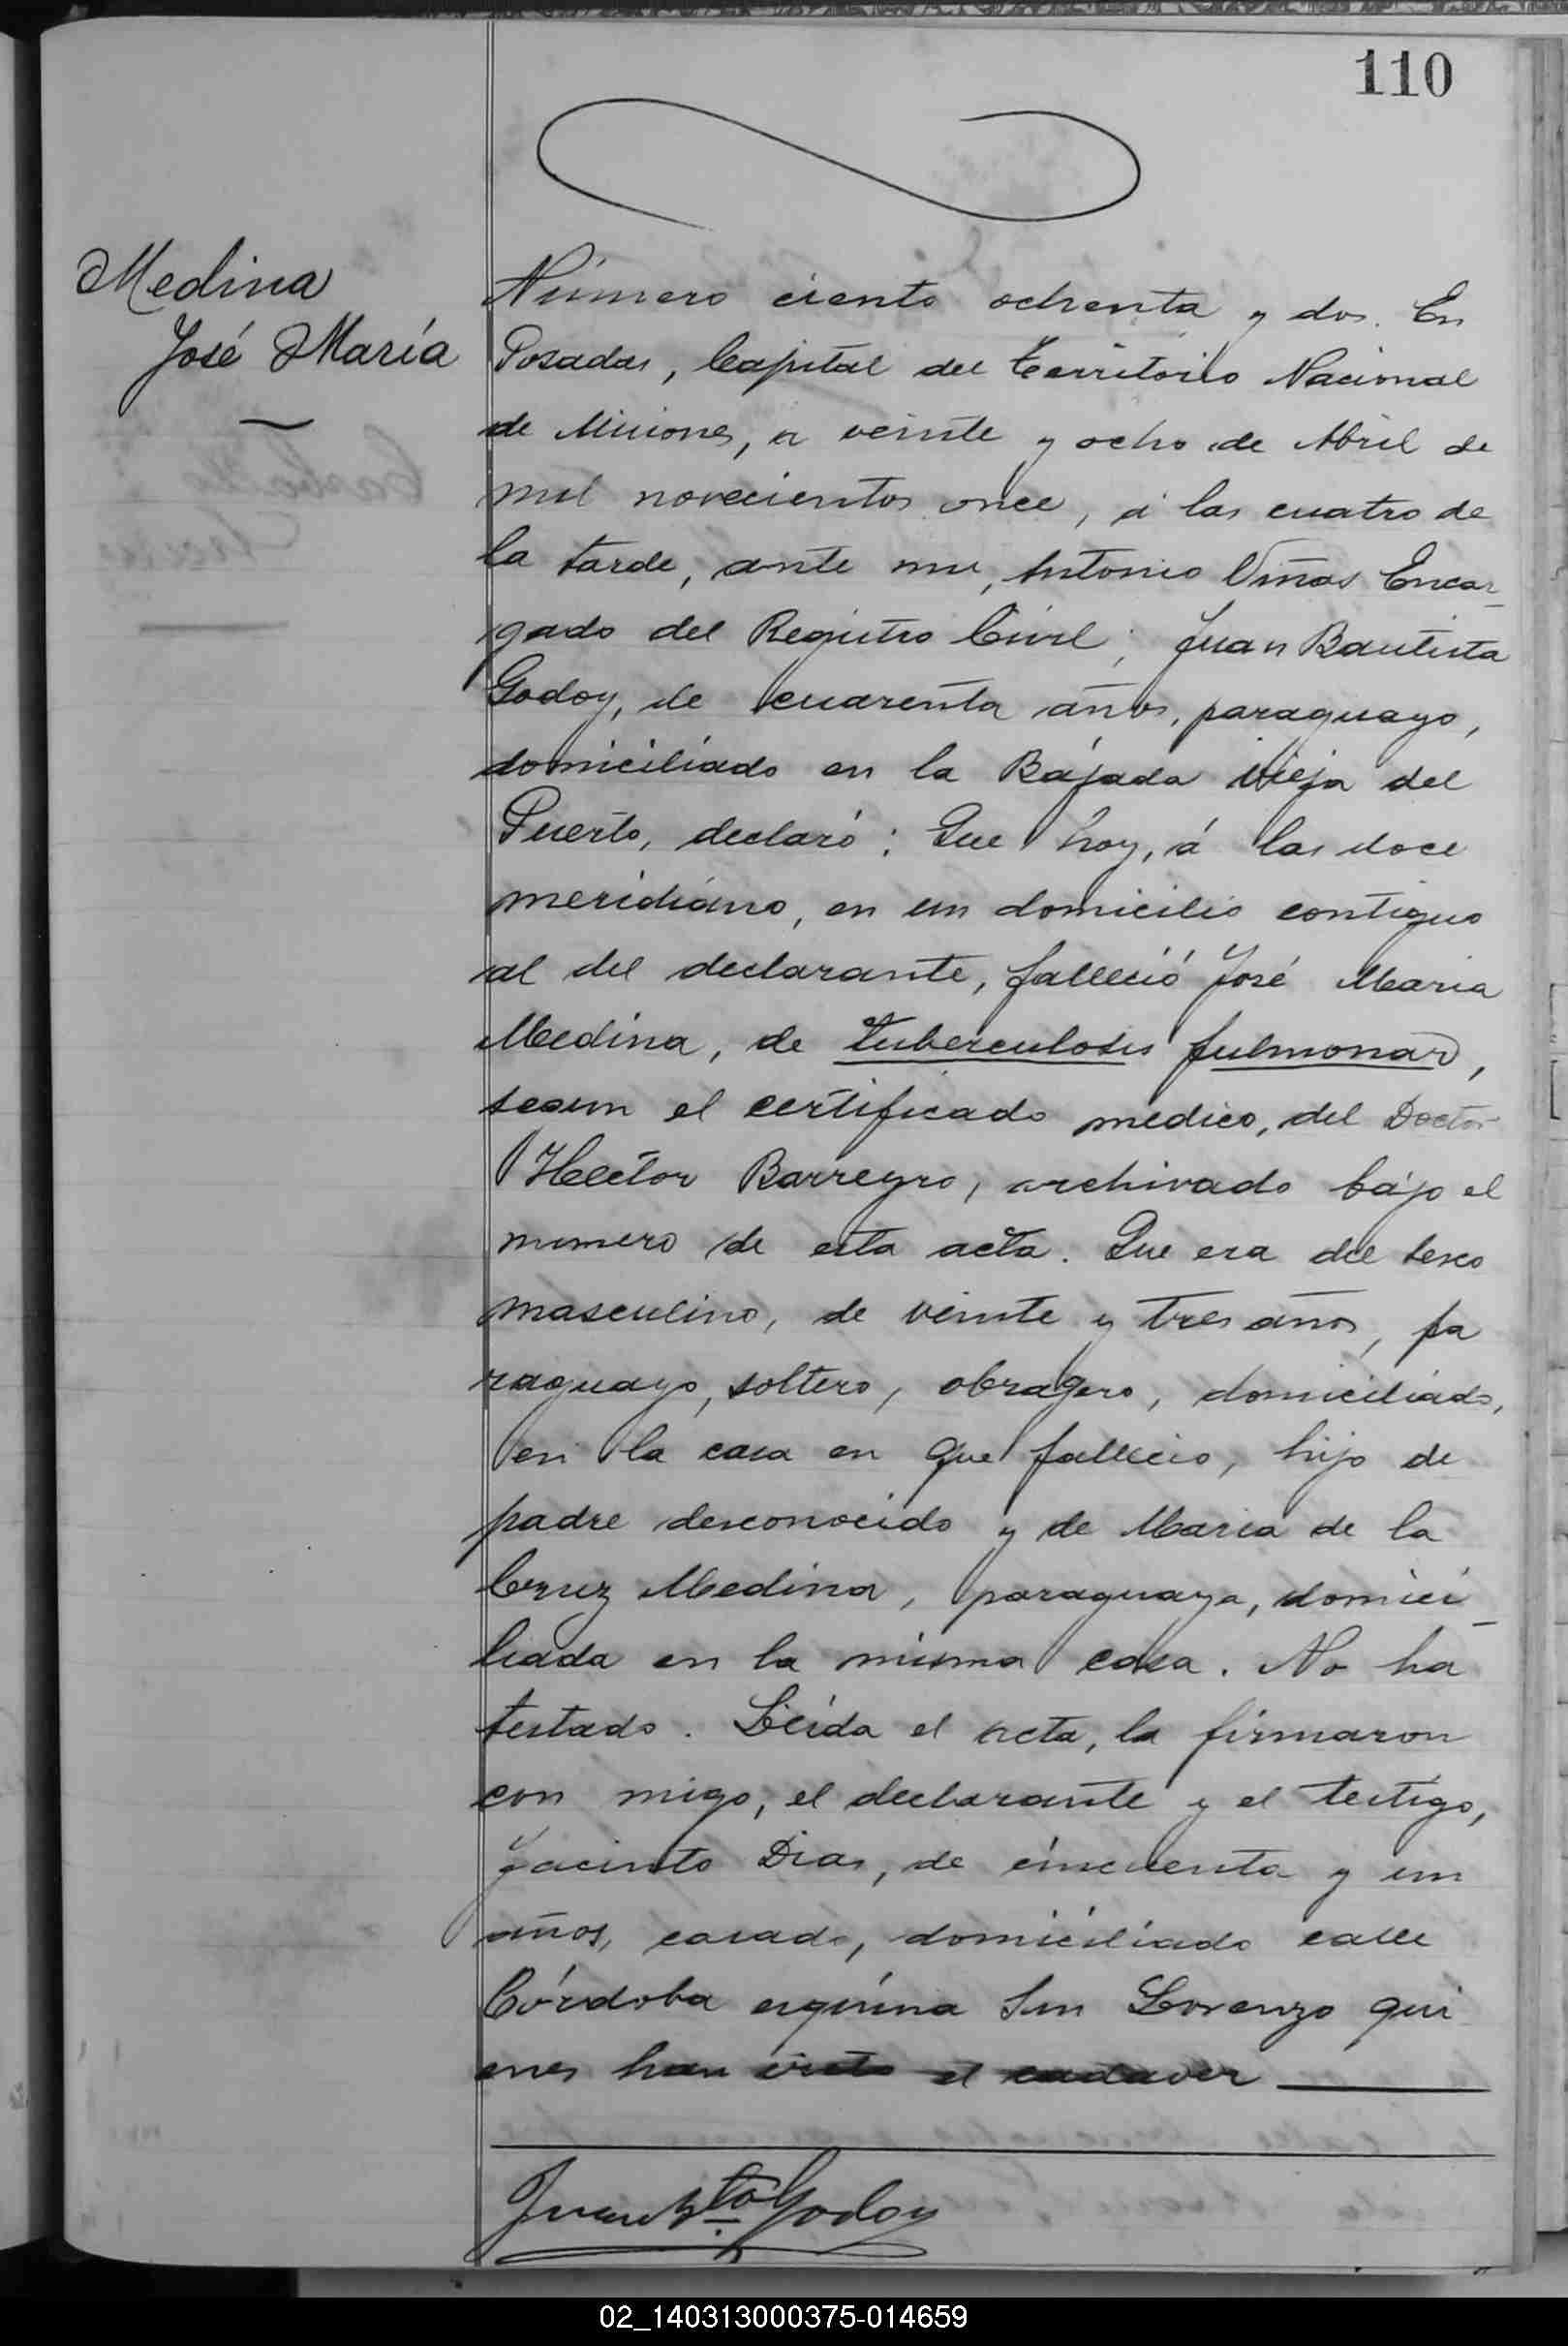 110
Medina
José María
Número ciento ochenta y dos. En
Posadas, Capital del Territorio Nacional
de Misiones, a veinte y ocho de Abril de
mil novecientos once, á las cuatro de
la tarde, ante mi, Antonio Viñas Encar-
gado del Registro Civil; Juan Bautista
Godoy, de cuarenta años, paraguayo,
domiciliado en la Bajada vieja del
Puerto, declaró: Que hoy, á las doce
meridiano, en un domicilio contiguo
al del declarante, falleció José Maria
Medina, de tuberculosis pulmonar,
segun el certificado medico, del Doctor
Hector Barreyro, archivado bajo el
numero de esta acta. Que era del sexo
masculino, de veinte y tres años, pa
raguayo, soltero, obragero, domiciliado,
en la casa en que fallecio, hijo de
padre desconocido y de Maria de la
Cruz Medina, paraguaya, domici-
liada en la misma casa. No ha
testado. Leída el acta, la firmaron
con migo, el declarante y el testigo,
Jacinto Dias, de cincuenta y un
años, casado, domiciliado calle
Córdoba esquina San Lorenzo qui
enes han visto el cadaver
Juan Bta Godoy
02_140313000375-014659